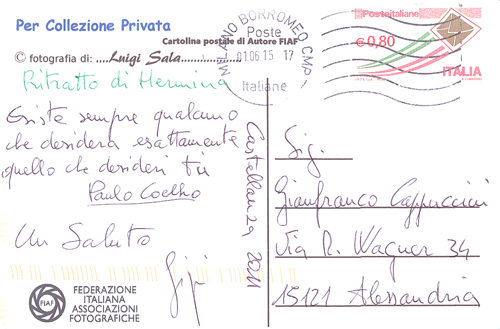 Per Collezione Privata
Cartolina postale di Autore FIAF
© fotografia di: ....Luigi Sala..............
Ritratto di Hermina
Esiste sempre qualcuno
che desidera esattamente
quello che desideri tu
Paulo Coelho
Un Saluto
Gigi
Castellanza 2011
FIAF
FEDERAZIONE
ITALIANA
ASSOCIAZIONI
FOTOGRAFICHE
MILANO BORROMEO CMP
Poste
01.06.15 17
Italiane
Posteitaliane
€ 0,80
ITALIA
Sig.
Gianfranco Cappuccini
Via R. Wagner 34
15121 Alessandria